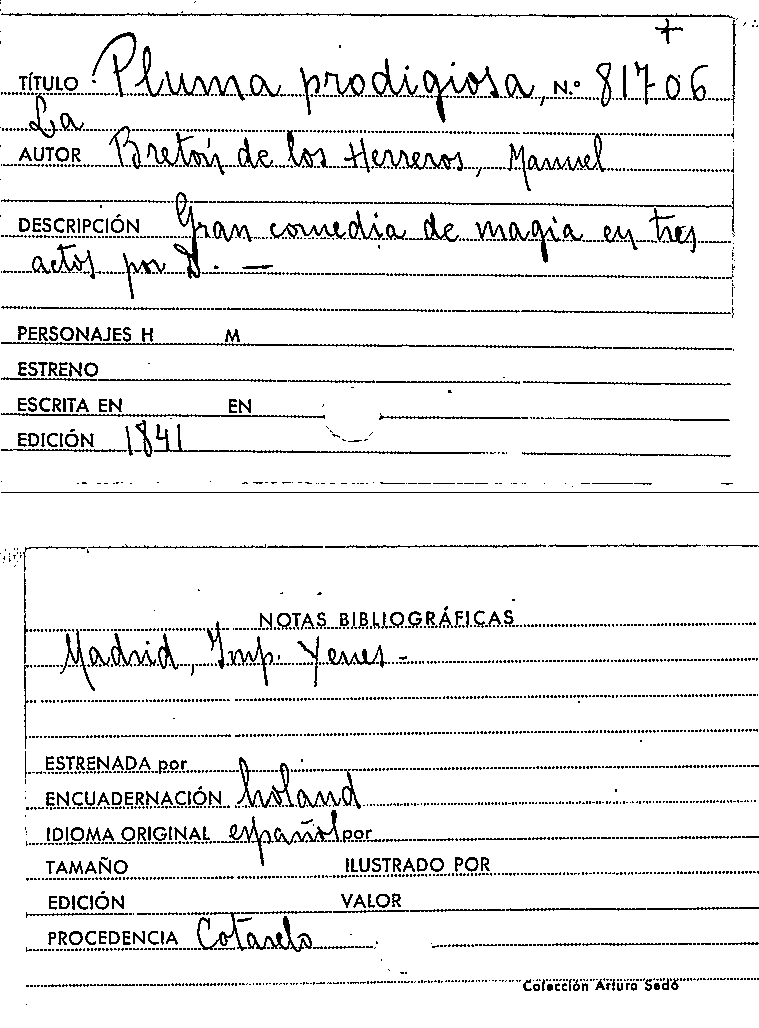 +
TÍTULO Pluma prodigiosa, N.º 81706
La
AUTOR Bretón de los Herreros, Manuel
DESCRIPCIÓN Gran comedia de magia en tres
actos por D. —
PERSONAJES H M
ESTRENO
ESCRITA EN EN
EDICIÓN 1841
NOTAS BIBLIOGRÁFICAS
Madrid, Imp. Yenes -
ESTRENADA por
ENCUADERNACIÓN holand
IDIOMA ORIGINAL español por
TAMAÑO ILUSTRADO POR
EDICIÓN VALOR
PROCEDENCIA Cotarelo
Colección Arturo Sedó